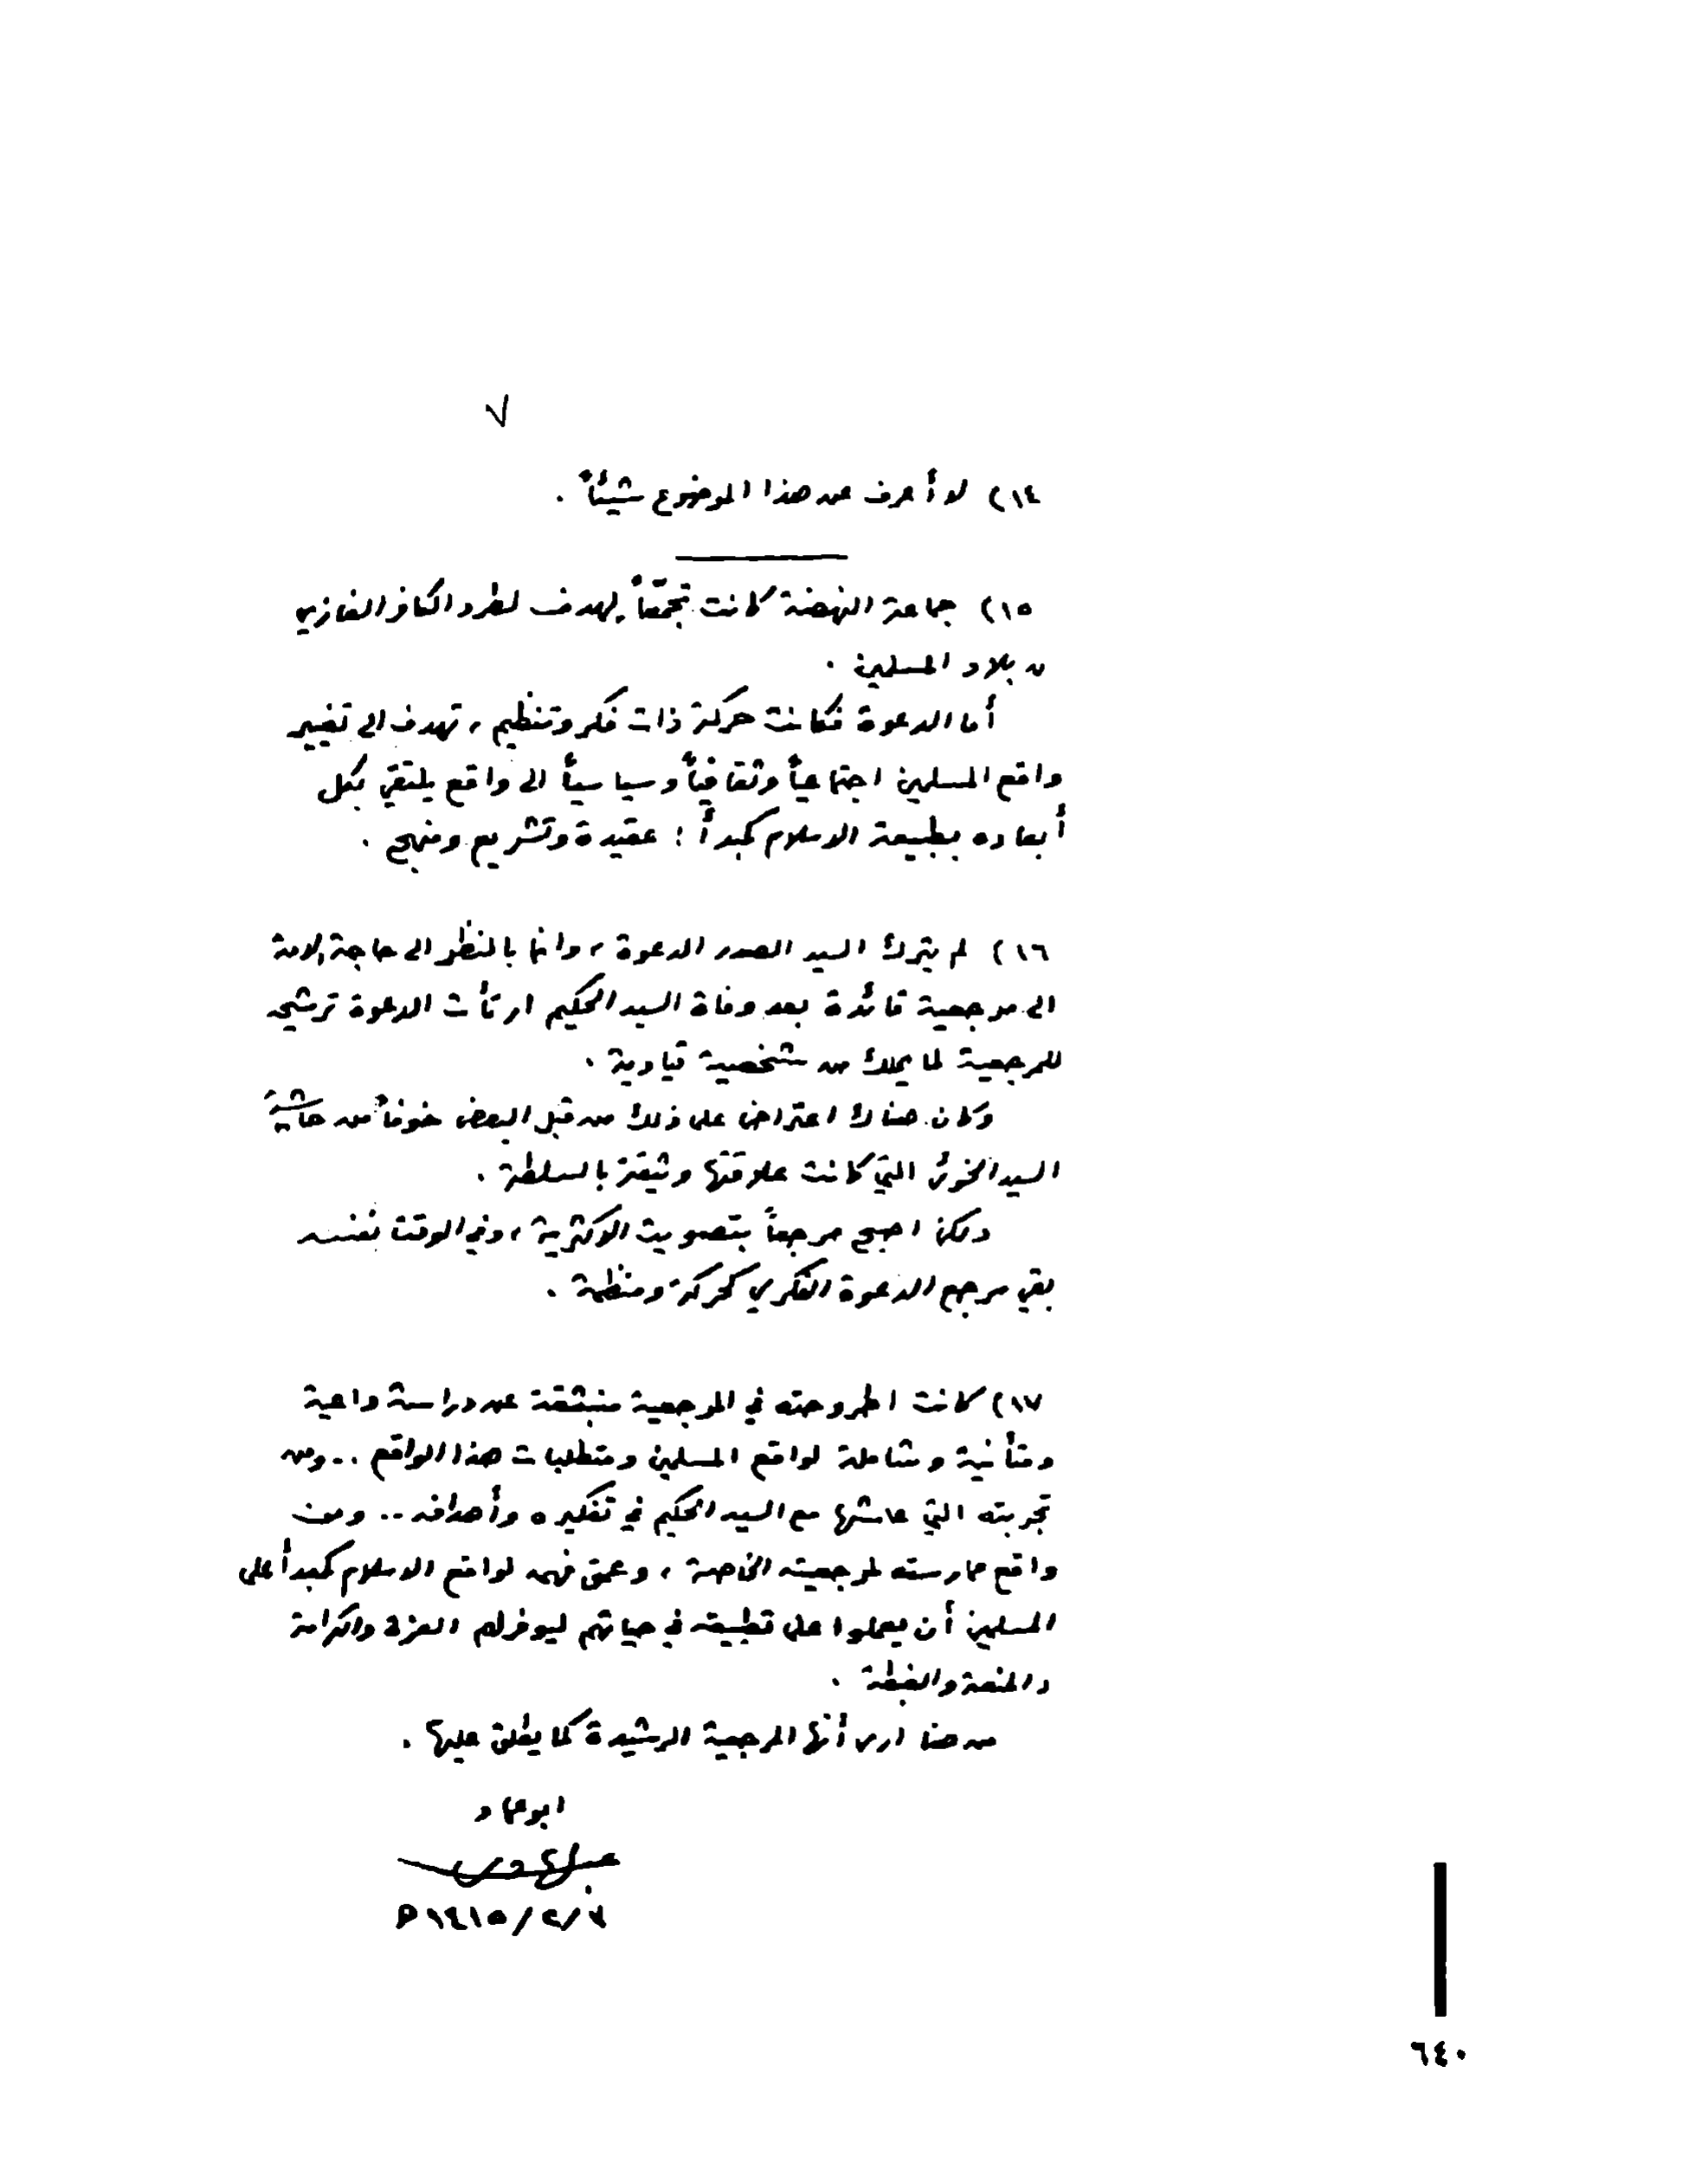 ٧
١٤) لا أعرف عن هذا الموضوع شيئاً .
١٥) جماعة النهضة كانت تجمّعاً يهدف لطرد الكافر الغازي
من بلاد المسلمين .
أما الدعوة فكانت حركة ذات فكر وتنظيم ، تهدف الى تغيير
واقع المسلمين اجتماعياً وثقافياً وسياسياً الى واقع يلتقي بكل
أبعاده بطبيعة الاسلام كمبدأ : عقيدة وتشريع ومنهج .
١٦) لم يترك السيد الصدر الدعوة ، وانما بالنظر الى حاجة الامة
الى مرجعية قائدة بعد وفاة السيد الحكيم ارتأت الدعوة ترشيحه
للمرجعية لما يملك من شخصية قيادية .
وكان هناك اعتراض على ذلك من قبل البعض خوفاً من حاشية
السيد الخوئي التي كانت علاقتها وثيقة بالسلطة .
ولكن اصبح مرجعاً بتصويت الاكثرية ، وفي الوقت نفسه
بقي مرجع الدعوة الفكري كحركة ومنظمة .
١٧) كانت اطروحته في المرجعية منبثقة عن دراسة واعية
ومتأنية وشاملة لواقع المسلمين ومتطلبات هذا الواقع .. ومن
تجربته التي عاشها مع السيد الحكيم في تفكيره وأهدافه .. ومن
واقع ممارسته لمرجعيته الخاصة ، وعمق فهمه لواقع الاسلام كمبدأ على
المسلمين أن يعملوا على تطبيقه في حياتهم ليوفر لهم العزة والكرامة
والمنعة والغبطة .
من هنا ارى أنها المرجعية الرشيدة كما يطلق عليها .
ابو عماد
/٢/١٤١٥ه
٦٤٠